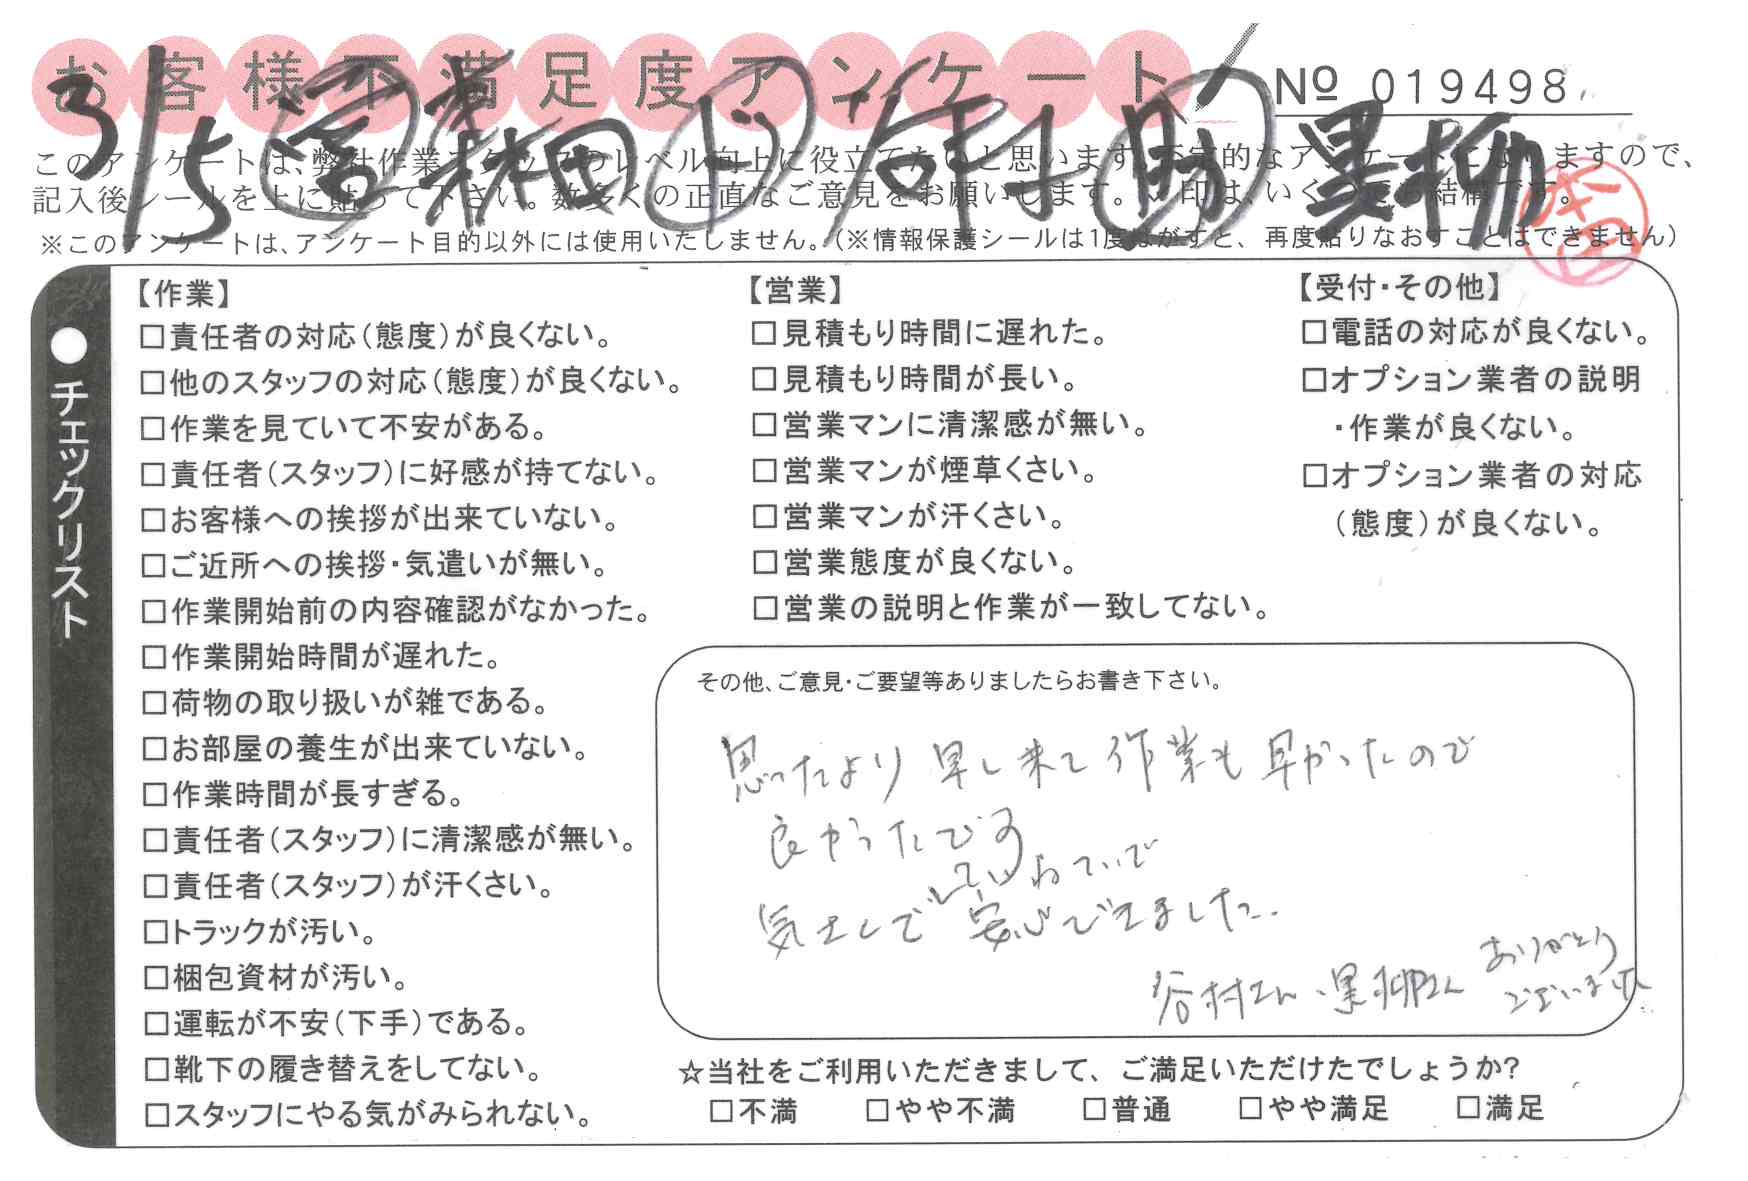 お客様不満足度アンケート
№ 019498
3/5 営 秋田 ド 谷村 助 黒柳
このアンケートは、弊社作業スタッフのレベル向上に役立てたいと思います。否定的なアンケートになりますので、
記入後シールを上に貼って下さい。数多くの正直なご意見をお願いします。✓印は、いくつでも結構です。
※このアンケートは、アンケート目的以外には使用いたしません。(※情報保護シールは1度はがすと、再度貼りなおすことはできません)
●チェックリスト
【作業】
□責任者の対応(態度)が良くない。
□他のスタッフの対応(態度)が良くない。
□作業を見ていて不安がある。
□責任者(スタッフ)に好感が持てない。
□お客様への挨拶が出来ていない。
□ご近所への挨拶・気遣いが無い。
□作業開始前の内容確認がなかった。
□作業開始時間が遅れた。
□荷物の取り扱いが雑である。
□お部屋の養生が出来ていない。
□作業時間が長すぎる。
□責任者(スタッフ)に清潔感が無い。
□責任者(スタッフ)が汗くさい。
□トラックが汚い。
□梱包資材が汚い。
□運転が不安(下手)である。
□靴下の履き替えをしてない。
□スタッフにやる気がみられない。
【営業】
□見積もり時間に遅れた。
□見積もり時間が長い。
□営業マンに清潔感が無い。
□営業マンが煙草くさい。
□営業マンが汗くさい。
□営業態度が良くない。
□営業の説明と作業が一致してない。
【受付・その他】
□電話の対応が良くない。
□オプション業者の説明
・作業が良くない。
□オプション業者の対応
(態度)が良くない。
その他、ご意見・ご要望等ありましたらお書き下さい。
思ったより早く来て作業も早かったので
良かったです
ていねいで
安心できました。
谷村さん、黒柳さん ありがとう
ございました
☆当社をご利用いただきまして、ご満足いただけたでしょうか?
□不満 □やや不満 □普通 □やや満足 □満足